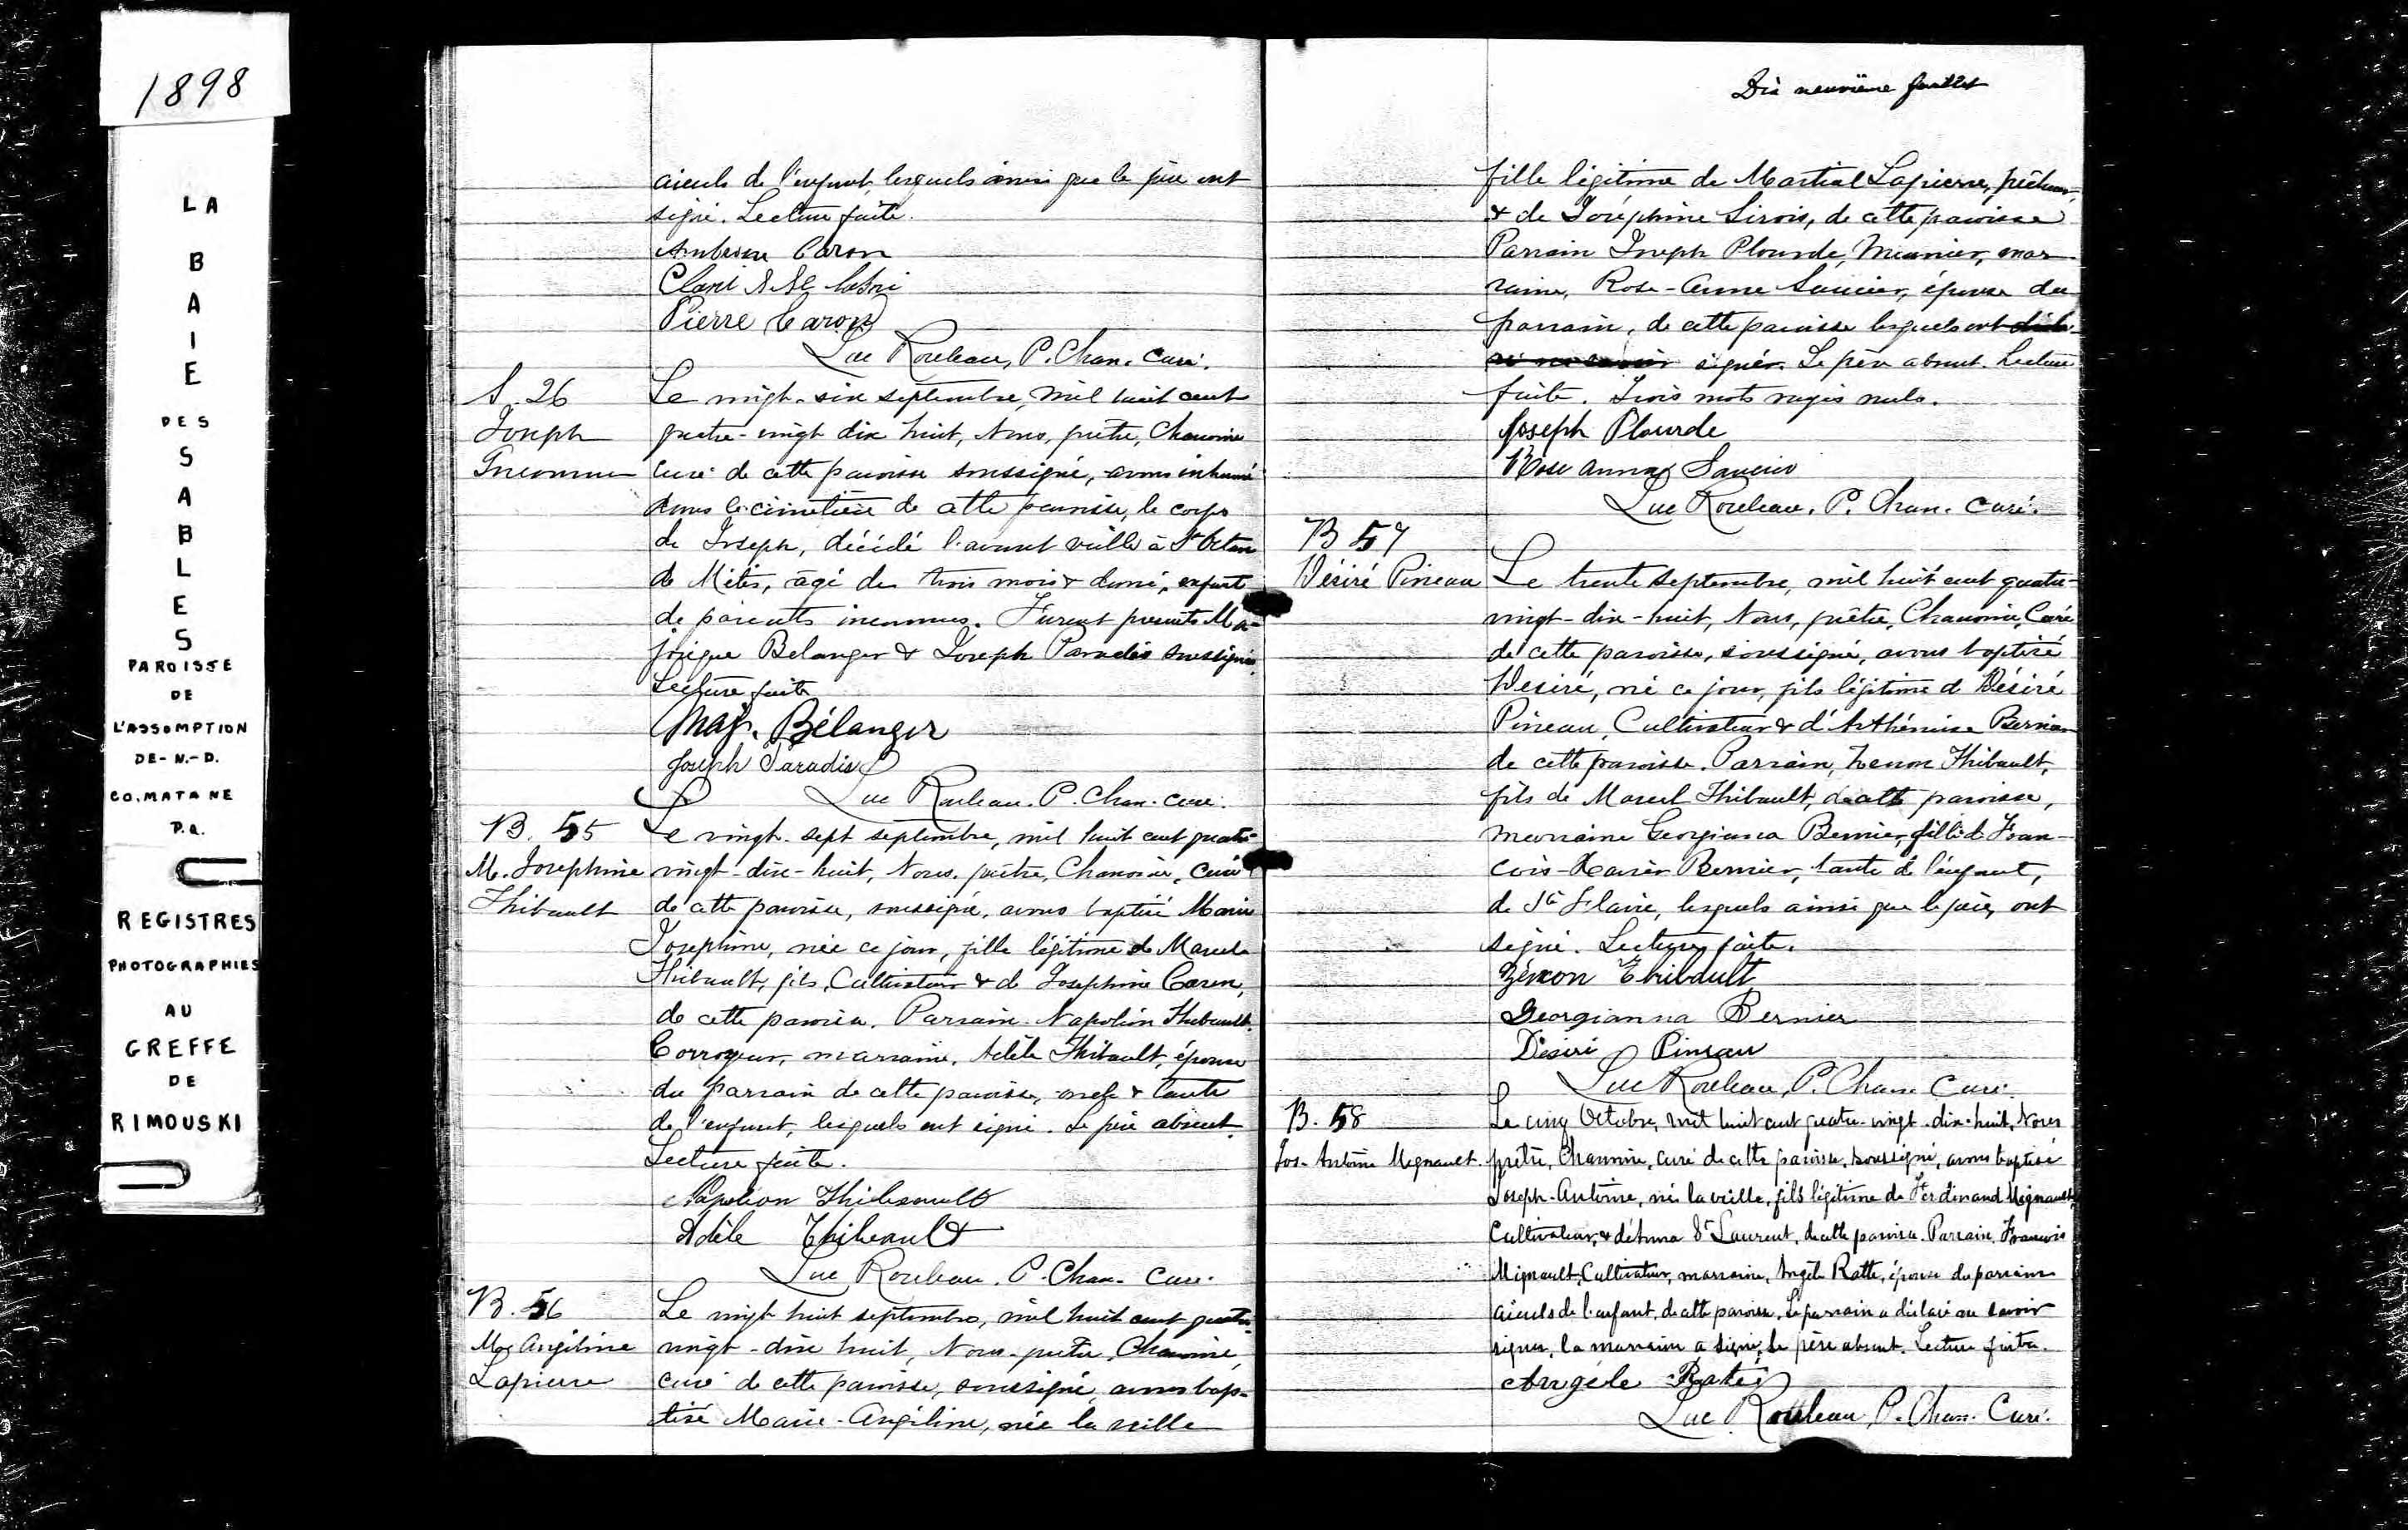 1898
LA
BAIE
DES
SABLES
PAROISSE
DE
L'ASSOMPTION
DE-N.-D.
CO. MATANE
P.Q.
REGISTRES
PHOTOGRAPHIES
AU
GREFFE
DE
RIMOUSKI
aieuls de l'enfant, lesquels ainsi que le père ont
signé. Lecture faite.
Ambroise Caron
Pierre Caron
Luc Rouleau, P. Chan. Curé.
S. 26
Joseph
Inconnu
Le vingt-six septembre, mil huit cent
quatre-vingt dix huit, Nous, prêtre, Chanoine
Curé de cette paroisse soussigné, avons inhumé
dans le cimetière de cette paroisse, le corps
de Joseph, décédé l'avant veille à St Octave
de Métis, âgé de trois mois & demi, enfant
de parents inconnus. Furent présents Ma-
jorique Belanger & Joseph Paradis soussignés.
Lecture faite
Maj. Bélanger
Joseph Paradis
Luc Rouleau. P. Chan. curé.
B. 55
M. Josephine
Thibault
Le vingt-sept septembre, mil huit cent quatre
vingt-dix-huit, Nous, prêtre, Chanoine, Curé
de cette paroisse, soussigné, avons baptisé Marie
Josephine, née ce jour, fille légitime de Marcel
Thibault, fils, Cultivateur & de Josephine Caron,
de cette paroisse. Parrain Napoléon Thibault,
Corroyeur, marraine, Adèle Thibault, épouse
du parrain de cette paroisse, oncle & tante
de l'enfant, lesquels ont signé. Le père absent.
Lecture faite.
Napoléon Thibeault
Adèle Thibeault
Luc Rouleau. P. Chan. Curé.
B. 56
Mie Angéline
Lapierre
Le vingt huit septembre, mil huit cent quatre
vingt-dix huit, Nous prêtre, Chanoine,
curé de cette paroisse, soussigné, avons bap-
tisé Marie-Angéline, née la veille
Dix neuvième feuillet
fille légitime de Martial Lapierre, pêcheur,
& de Joséphine Sirois, de cette paroisse
Parrain Joseph Plourde, Meunier, mar
raine, Rose-Anne Saucier, épouse du
parrain, de cette paroisse lesquels ont décla-
ré ne savoir signer. Le père absent. Lecture
faite. Trois mots rayés nuls.
Joseph Plourde
Rose anna Saucier
Luc Rouleau. P. Chan. Curé.
B 57
Désiré Pineau
Le trente septembre, mil huit cent quatre-
vingt-dix-huit, Nous, prêtre, Chanoine, Curé
de cette paroisse, soussigné, avons baptisé
Desiré, né ce jour, fils légitime de Désiré
Pineau, Cultivateur & d'Arthémise Bernier
de cette paroisse. Parrain, Zenon Thibault,
fils de Marcel Thibault, de cette paroisse,
marraine Georgianna Bernier, fille de Fran-
cois-Xavier Bernier, tante de l'enfant,
de Ste Flavie, lesquels ainsi que le père, ont
signé. Lecture faite.
Zénon Thibault
Georgianna Bernier
Désiré Pineau
Luc Rouleau, P. Chan. Curé.
B. 58
Jos. Antoine Mignault.
Le cinq Octobre, mil huit cent quatre-vingt-dix-huit, Nous
prêtre, Chanoine, curé de cette paroisse, soussigné, avons baptisé
Joseph-Antoine, né la veille, fils légitime de Ferdinand Mignault,
Cultivateur, & d'Anna St Laurent, de cette paroisse. Parrain, Francois
Mignault, Cultivateur, marraine, Angèle Ratté, épouse du parrain
aieuls de l'enfant, de cette paroisse. Le parrain a déclaré ne savoir
signer, la marraine a signé. Le père absent. Lecture faite.
Angèle Raté
Luc Rouleau, P. Chan. Curé.